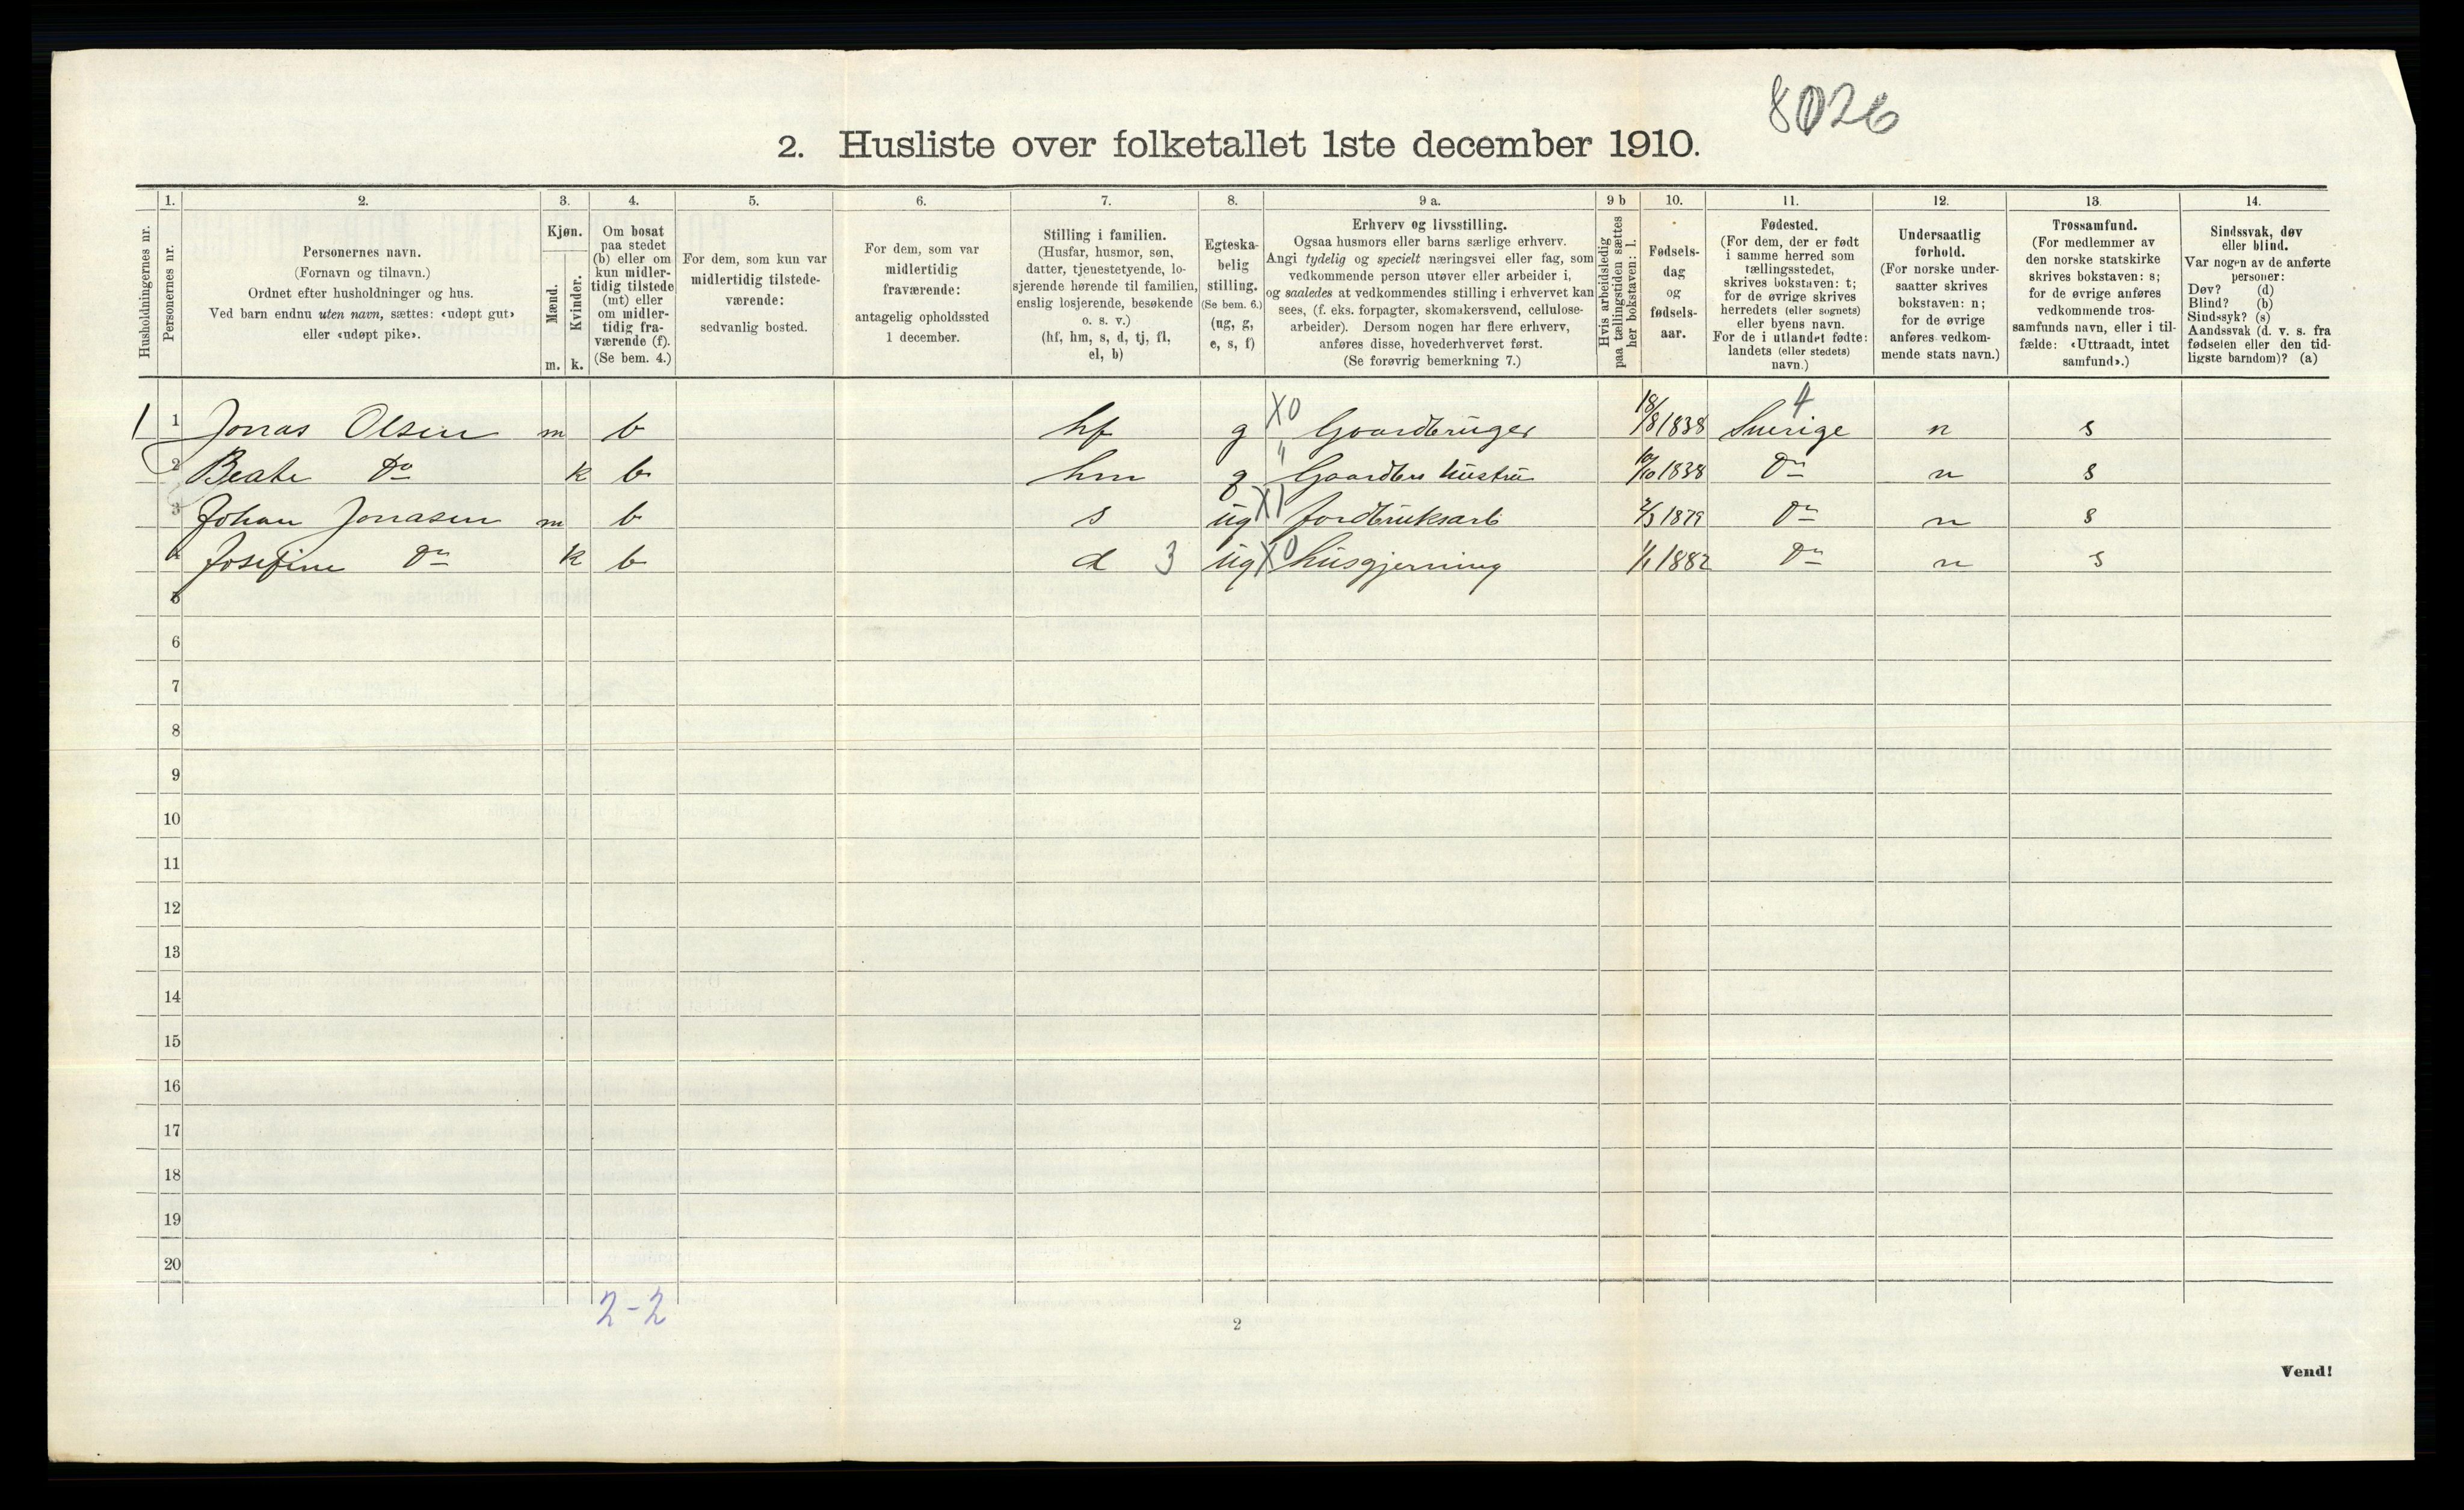 8026
2. Husliste over folketallet 1ste december 1910.
1. 2. 3. 4. 5. 6. 7. 8. 9 a. 9 b 10. 11. 12. 13. 14.
Husholdningernes nr.
Personernes nr.
Personernes navn.
(Fornavn og tilnavn.)
Ordnet efter husholdninger og hus.
Ved barn endnu uten navn, sættes: «udøpt gut»
eller «udøpt pike».
Kjøn.
Mænd.
Kvinder.
m. k.
Om bosat
paa stedet
(b) eller om
kun midler-
tidig tilstede
(mt) eller
om midler-
tidig fra-
værende (f).
(Se bem. 4.)
For dem, som kun var
midlertidig tilstede-
værende:
sedvanlig bosted.
For dem, som var
midlertidig
fraværende:
antagelig opholdssted
1 december.
Stilling i familien.
(Husfar, husmor, søn,
datter, tjenestetyende, lo-
sjerende hørende til familien,
enslig losjerende, besøkende
o. s. v.)
(hf, hm, s, d, tj, fl,
el, b)
Egteska-
belig
stilling.
(Se bem. 6.)
(ug, g,
e, s, f)
Erhverv og livsstilling.
Ogsaa husmors eller barns særlige erhverv.
Angi tydelig og specielt næringsvei eller fag, som
vedkommende person utøver eller arbeider i,
og saaledes at vedkommendes stilling i erhvervet kan
sees, (f. eks. forpagter, skomakersvend, cellulose-
arbeider). Dersom nogen har flere erhverv,
anføres disse, hovederhvervet først.
(Se forøvrig bemerkning 7.)
Hvis arbeidsledig
paa tællingstiden sættes
her bokstaven: l.
Fødsels-
dag
og
fødsels-
aar.
Fødested.
(For dem, der er født
i samme herred som
tællingsstedet,
skrives bokstaven: t;
for de øvrige skrives
herredets (eller sognets)
eller byens navn.
For de i utlandet fødte:
landets (eller stedets)
navn.)
Undersaatlig
forhold.
(For norske under-
saatter skrives
bokstaven: n;
for de øvrige
anføres vedkom-
mende stats navn.)
Trossamfund.
(For medlemmer av
den norske statskirke
skrives bokstaven: s;
for de øvrige anføres
vedkommende tros-
samfunds navn, eller i til-
fælde: «Uttraadt, intet
samfund».)
Sindssvak, døv
eller blind.
Var nogen av de anførte
personer:
Døv? (d)
Blind? (b)
Sindssyk? (s)
Aandssvak (d. v. s. fra
fødselen eller den tid-
ligste barndom)? (a)
4
1 1 Jonas Olsen m b hf g X0 Gaardbruger 18/8 1838 Sverige n s
2 Beate Do k b hm g " Gaardbr hustru 1838 Do n s
3 Johan Jonasen m b s ug X1 Jordbruksarb 1879 Do n s
4 Josefine Do k b d 3 ug X0 husgjerning 1/1 1882 Do n s
5
6
7
8
9
10
11
12
13
14
15
16
17
18
19
20
2-2
2
Vend!